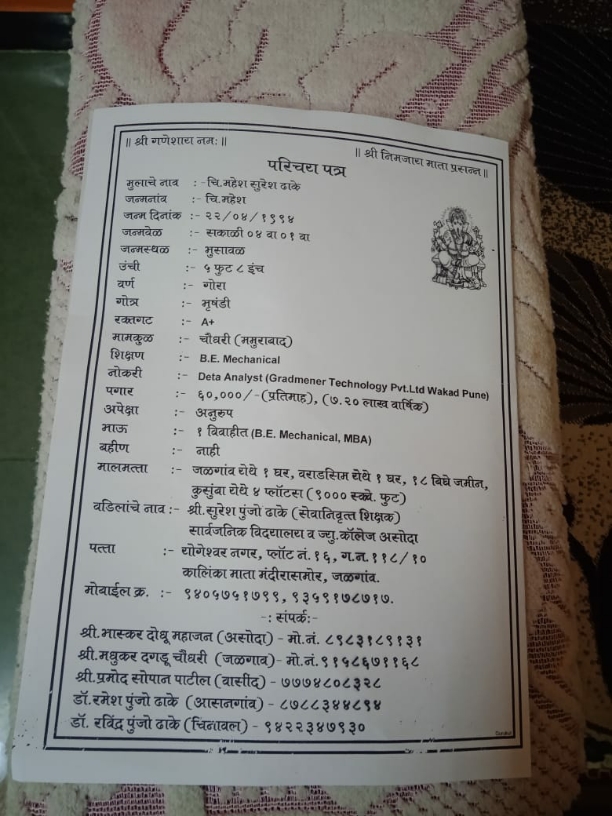 ॥ श्री गणेशाय नमः॥
॥ श्री निमजाय माता प्रसन्न॥
परिचय पत्र
मुलाचे नाव :-चि.महेश सुरेश ढाके
जन्मनांव :-चि.महेश
जन्म दिनांक :- २२/०४/१९९४
जन्मवेळ :- सकाळी ०४ वा ०१ वा
जन्मस्थळ :- भुसावळ
उंची :- ५ फुट ८ इंच
वर्ण :- गोरा
गोत्र :- भृषंडी
रक्तगट :- A+
मामकुळ :- चौधरी (ममुराबाद)
शिक्षण :- B.E. Mechanical
नोकरी :- Deta Analyst (Gradmener Technology Pvt.Ltd Wakad Pune)
पगार :- ६०,०००/-(प्रतिमाह), (७.२० लाख वार्षिक)
अपेक्षा :- अनुरुप
भाऊ :- १ विवाहीत (B.E. Mechanical, MBA)
बहीण :- नाही
मालमत्ता :- जळगांव येथे १ घर, वराडसिम येथे १ घर, १८ बिघे जमीन,
कुसुंबा येथे ४ प्लॉटस (९००० स्क्वे. फुट)
वडिलांचे नाव :- श्री.सुरेश पुंजो ढाके (सेवानिवृत्त शिक्षक)
सार्वजनिक विद्यालय व ज्यु.कॉलेज असोदा
पत्ता :- योगेश्वर नगर, प्लॉट नं.१६, ग.न.११८/१०
कालिंका माता मंदीरासमोर, जळगांव.
मोबाईल क्र. :- ९४०५७५१७९९, ९३५९१७८७१७.
-: संपर्क:-
श्री.भास्कर दोधू महाजन (असोदा) - मो.नं. ८९८३१८९१३१
श्री.मधुकर दगडू चौधरी (जळगाव)- मो.नं.९१५८६७११६८
श्री.प्रमोद सोपान पाटील (वासींद) - ७७७४८०८३२८
डॉ.रमेश पुंजो ढाके (आसनगांव) - ८७८८३४४८९४
डॉ. रविंद्र पुंजो ढाके (चिनावल) - ९४२२३४७९३०